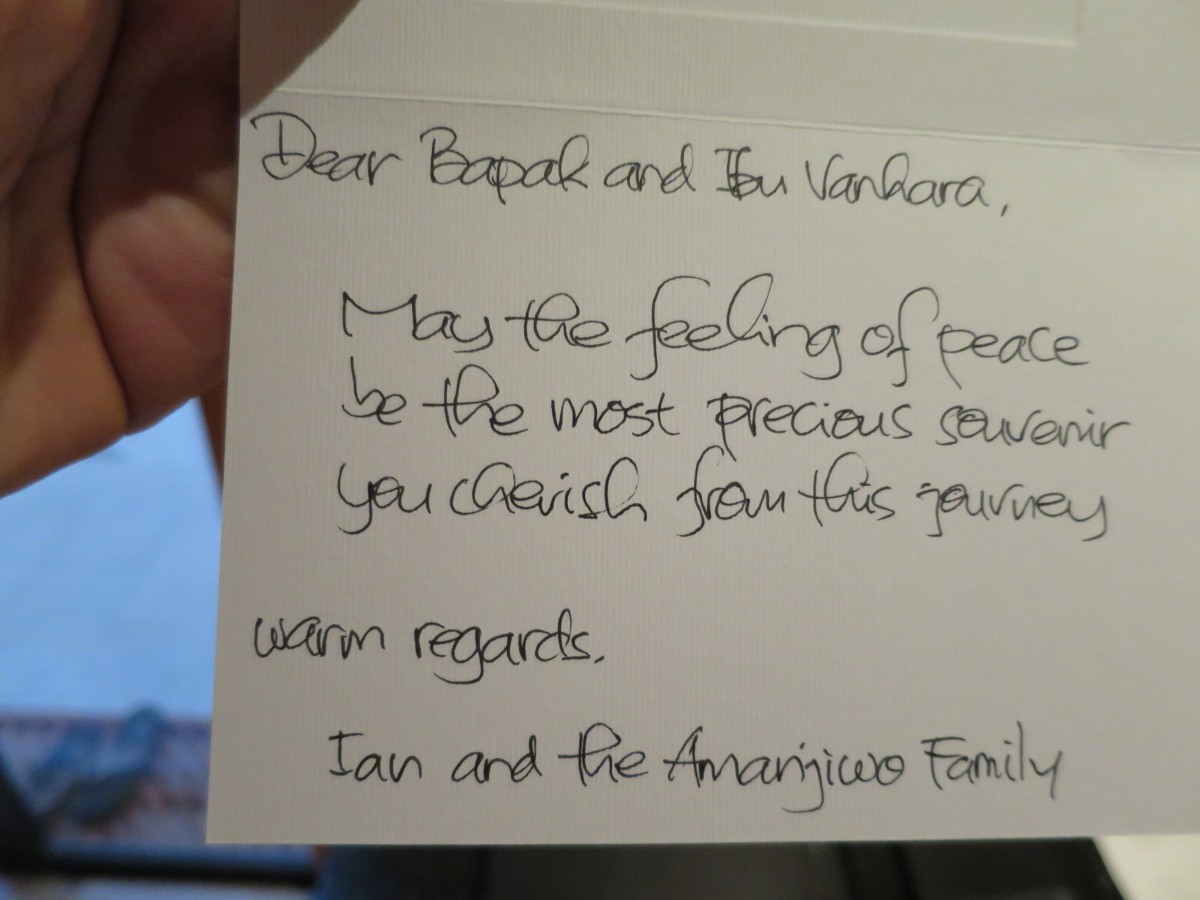 Dear Bapak and Ibu Vanhara,
May the feeling of peace
be the most precious souvenir
you cherish from this journey
warm regards.
Ian and the Amanjiwo Family